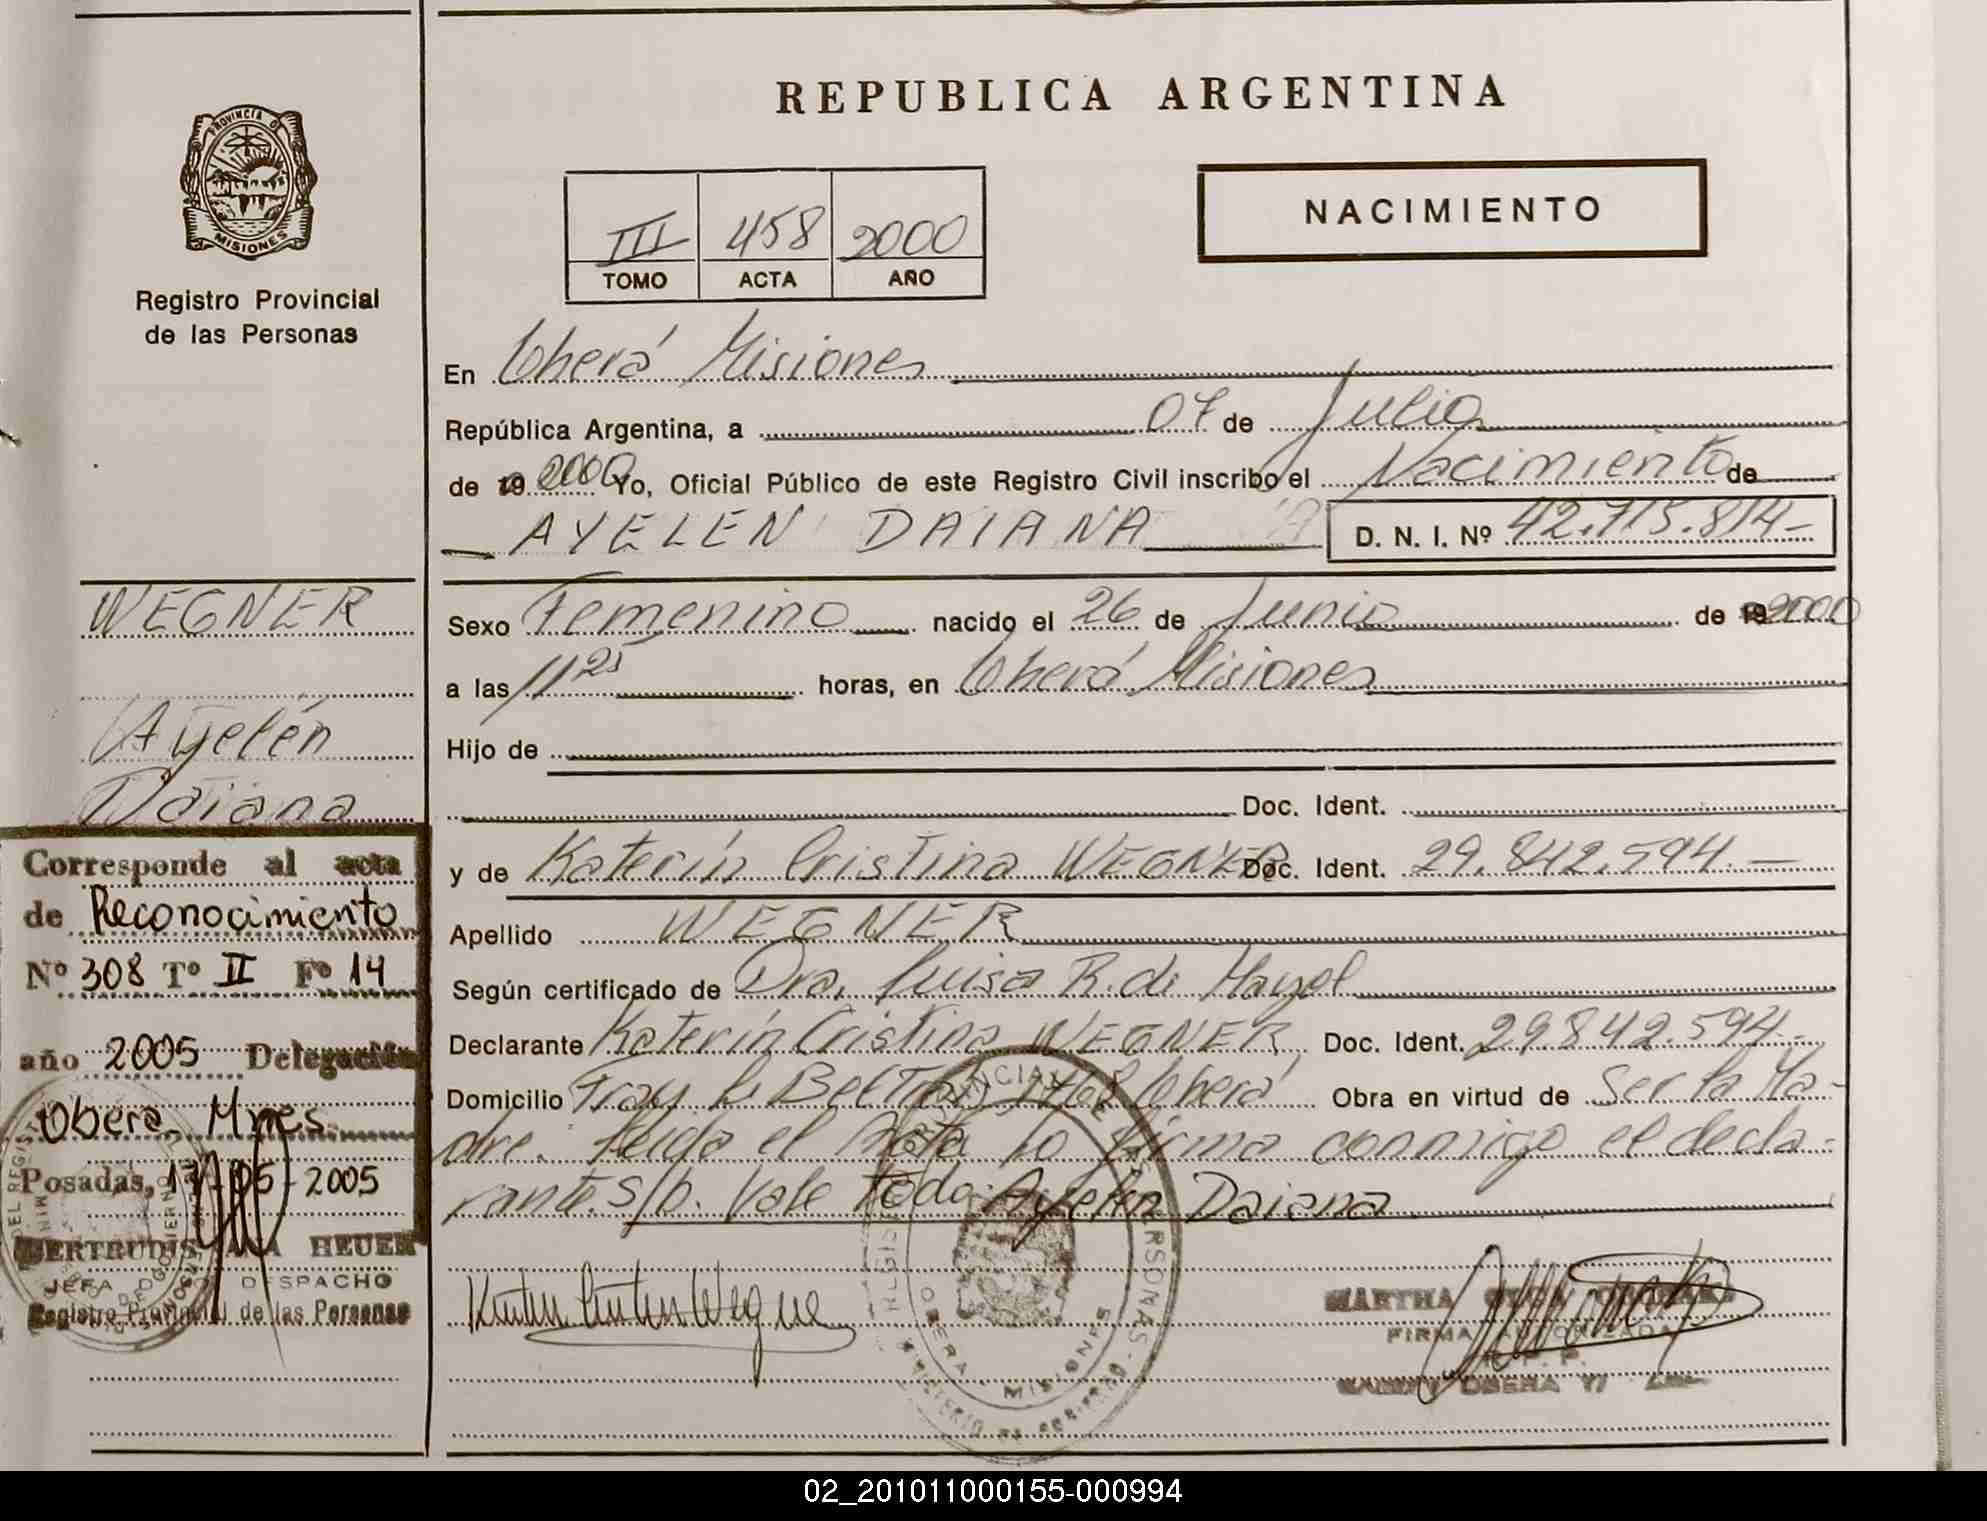 REPUBLICA ARGENTINA
PROVINCIA DE
MISIONES
Registro Provincial
de las Personas
III 458 2000
TOMO ACTA AÑO
NACIMIENTO
En Oberá Misiones
República Argentina, a 07 de Julio
de 19 2000 Yo, Oficial Público de este Registro Civil inscribo el Nacimiento de
AYELEN DAIANA D. N. I. Nº 42.715.814-
WEGNER
Ayelén
Daiana
Sexo Femenino nacido el 26 de Junio de 19 2000
a las 11 25 horas, en Oberá Misiones
Hijo de
Doc. Ident.
y de Katerín Cristina WEGNER Doc. Ident. 29.842.594.-
Apellido WEGNER
Según certificado de Dra. Luisa R. de Mayol
Declarante Katerín Cristina WEGNER Doc. Ident. 29842.594-
Domicilio Fray L. Beltrán Oberá Obra en virtud de Ser la Ma-
dre. Leida el Acta la firma conmigo el decla-
rante. S/b. Vale todo: Ayelén Daiana
Corresponde al acta
de Reconocimiento
Nº 308 Tº II Fº 14
año 2005 Delegación
Oberá Mnes.
Posadas, 17-05-2005
GERTRUDIS HEUER
JEFA DESPACHO
Registro Provincial de las Personas
Katerin Cristina Wegner
MARTHA
FIRMA AUTORIZADA
R. P. P.
OBERA
OBERA - MISIONES
02_201011000155-000994